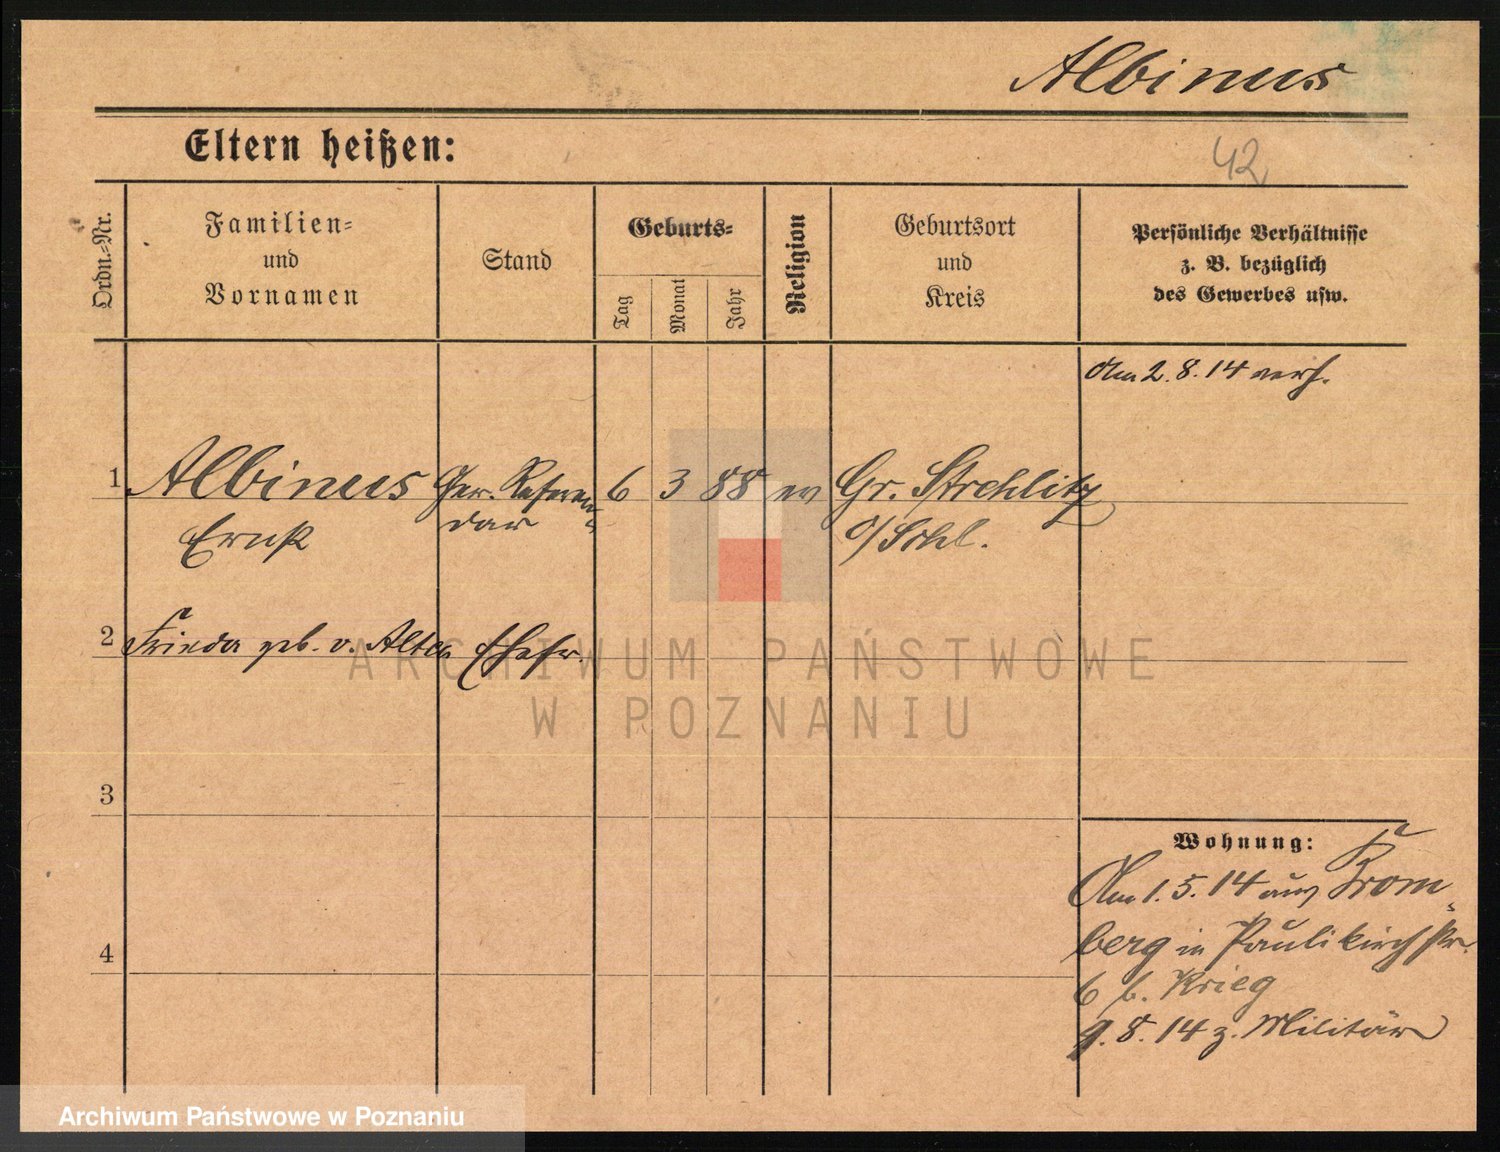 Albinus
Eltern heißen:
42
Ordn.-Nr.
Familien-
und
Vornamen
Stand
Geburts-
Tag
Monat
Jahr
Religion
Geburtsort
und
Kreis
Persönliche Verhältnisse
z. B. bezüglich
des Gewerbes usw.
Am 2.8.14 verh.
1 Albinus Ger. Referen- 6 3 88 ev Gr. Strehlitz
Ernst dar O/Schl.
2 Frieda geb. v. Alten Ehefr.
ARCHIWUM PAŃSTWOWE
W POZNANIU
3
Wohnung:
Am 1.5.14 aus Brom-
4
berg in Paulikirchstr.
6 b. Krieg
9.8.14 z. Militär
Archiwum Państwowe w Poznaniu